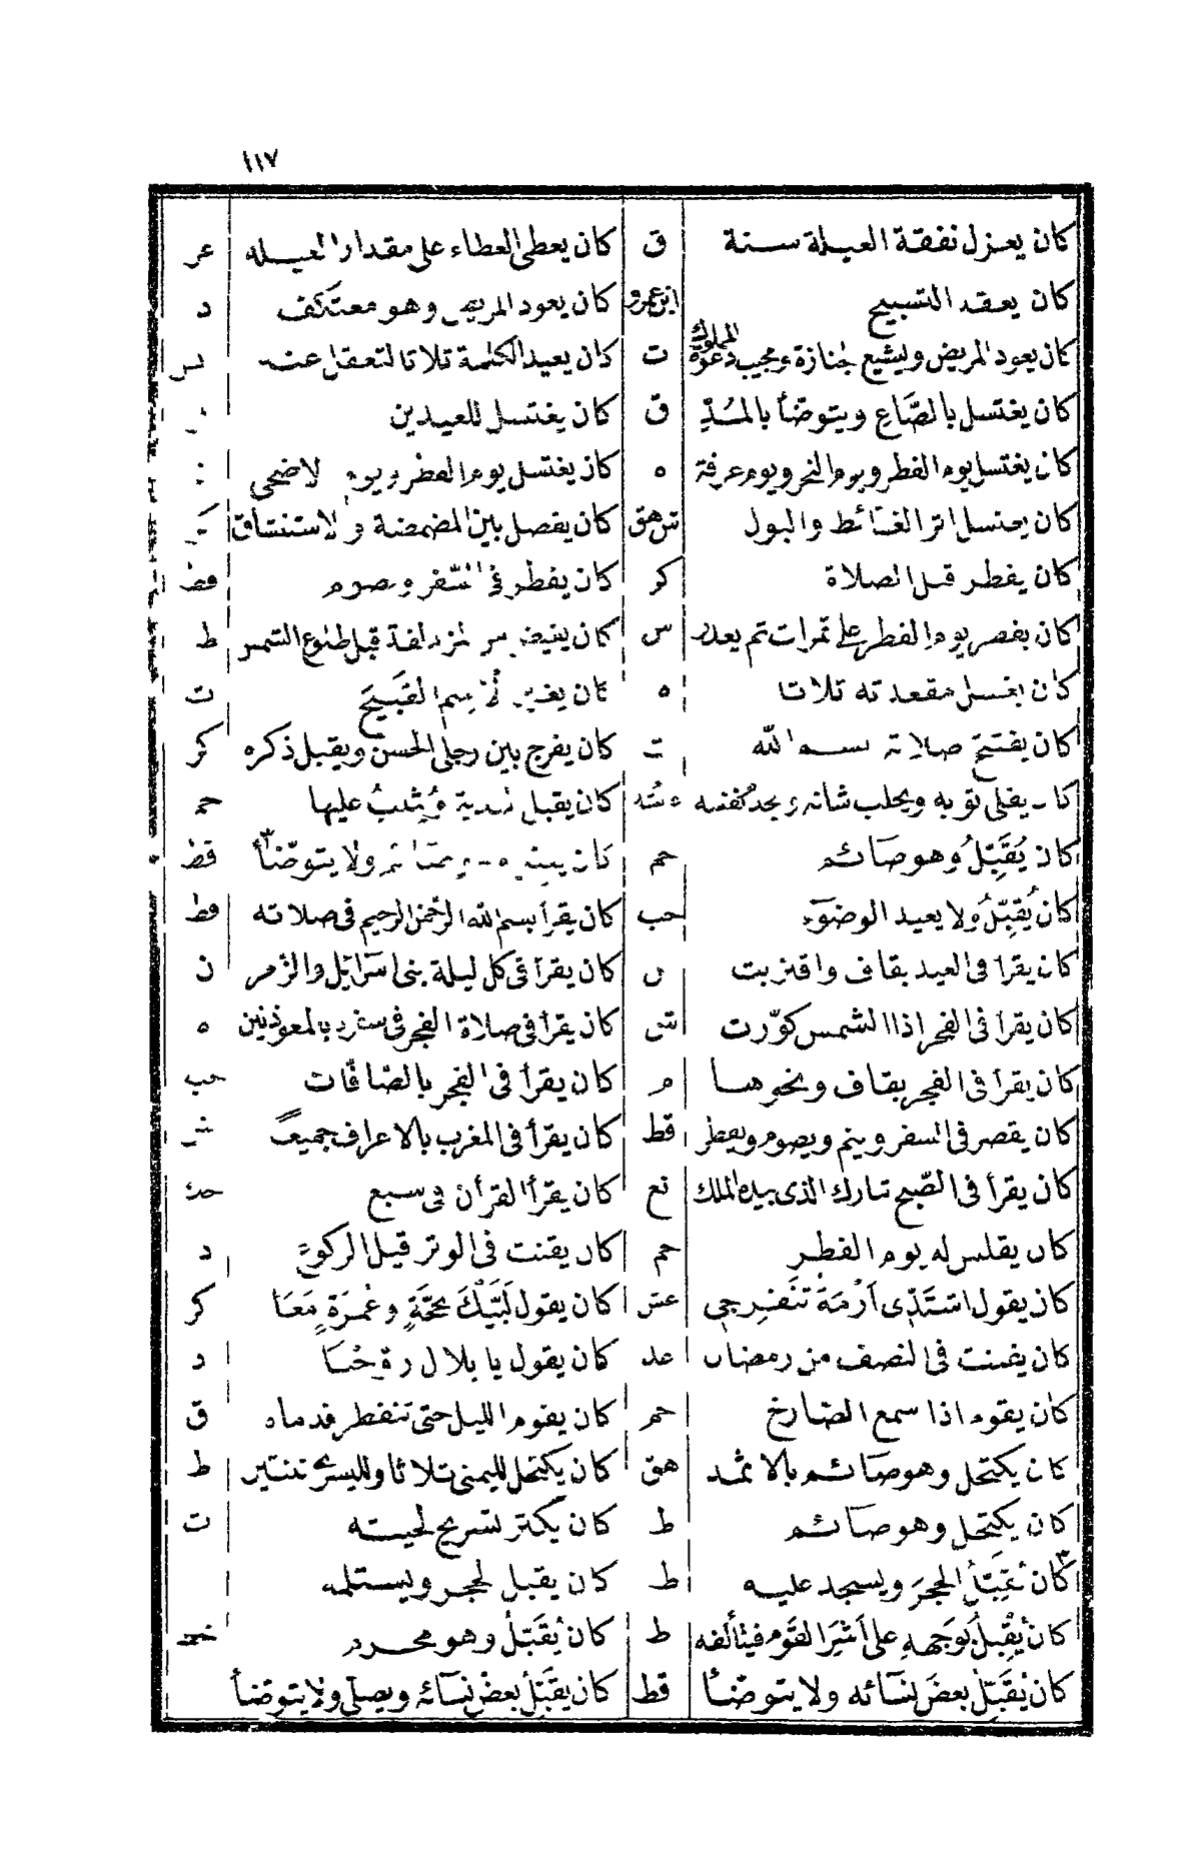 ١١٧
كان يعزل نفقة العيلة سنة ق كان يعطى العطاء على مقدار العيله عر
كان يعقد التسبيح ابن عمرو كان يعود المريض وهو معتكف د
كان يعود المريض ويشيع جنازة ويجيب دعوة المملوك ت كان يعيد الكلمة ثلاثا لتعقل عنه
كان يغتسل بالصَّاعِ ويتوضأ بالمُدِّ ق كان يغتسل للعيدين
كان يغتسل يوم الفطر ويوم النحر ويوم عرفة ه كان يغتسل يوم الفطر ويوم الاضحى
كان يغتسل اثر الغائط والبول هق كان يفصل بين المضمضة والاستنشاق
كان يفطر قبل الصلاة كر كان يفطر فى السّفر ويصوم قط
كان يفطر يوم الفطر على تمرات ثم يغدو س كان يفيض من المزدلفة قبل طلوع الشمس ط
كان يغسل مقعدته ثلاثا ه كان يغير الاسم القبيح ت
كان يفتتح صلاته ببسم الله ت كان يفرج بين رجلى الحسن ويقبل ذكره كر
كان يفلى ثوبه ويحلب شاته ويخدم نفسه كان يقبل الهدية ويُثيبُ عليها حم
كان يُقَبِّلُ وهو صائم حم كان ولا يتوضّأ قط
كان يُقبِّلُ ولا يعيد الوضوء حب كان يقرأ بسم الله الرحمن الرحيم فى صلاته قط
كان يقرأ فى العيد بقاف واقتربت ن كان يقرأ فى كل ليلة بنى اسرائيل والزمر ن
كان يقرأ فى الفجر اذا الشمس كوّرت ش كان يقرأ فى صلاة الفجر فى سفره بالمعوذتين ه
كان يقرأ فى الفجر بقاف ونحوها م كان يقرأ فى الفجر بالصّافّات حب
كان يقصر فى السفر ويتم ويصوم ويفطر قط كان يقرأ فى المغرب بالاعراف جميعًا ش
كان يقرأ فى الصّبح تبارك الذى بيده الملك نع كان يقرأ القرآن فى سبع
كان يقلس له يوم الفطر حم كان يقنت فى الوتر قبل الركوع د
كان يقول اشتَدِّى اَزْمَةُ تَنفَرِجى كان يقول لَبَّيْكَ بحَجَّةٍ وعُمْرَةٍ مَعًا كر
كان يقنت فى النصف من رمضان عد كان يقول يا بلال د
كان يقوم اذا سمع الصّارخ حم كان يقوم الليل حتى تنفطر قدماه ق
كان يكتحل وهو صائم بالاثمد هق كان يكتحل لليمنى ثلاثا ولليسرى ثنتين ط
كان يكتحل وهو صائم ط كان يكثر تسريح لحيته ت
كان يُقَبِّلُ الحجرَ ويسجد عليه ط كان يقبل الحجر ويستلمه
كان يُقْبِلُ بوَجهِهِ على اَشَرِّ القوم فيتألفه ط كان يُقَبِّلُ وهو محرم
كان يُقَبِّل بعضَ نسآئه ولا يتوضّأ قط كان يقَبِّلُ بعضَ نسآئه ويصلى ولا يتوضّأ